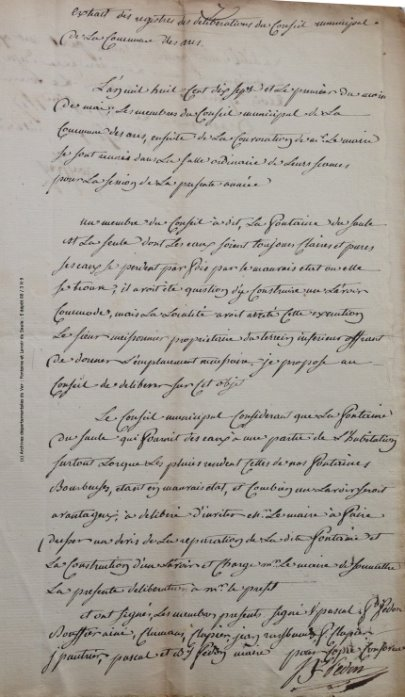 extrait des registres des deliberations du Conseil municipal
de la Commune des arcs
L'an mil huit Cent dix sept et le premier du mois
de mai, les membres du Conseil municipal de la
Commune des arcs, ensuite de la Convocation de mr. le maire
se sont reunis dans la salle ordinaire de leurs seances
pour la session de la presente année
un membre du Conseil a dit, La fontaine du saule
est la seule dont les eaux soient toujours claires et pures
ses eaux se perdent par fois par le mauvais etat ou elle
se trouve; il avoit été question d'y Construire un Lavoir
Commode, mais la localité avoit arreté Cette execution
Le sieur meissonner proprietaire du terrein inferieur offrant
de donner l'emplacement necessaire, je propose au
Conseil de deliberer sur Cet objet
Le Conseil municipal Considerant que la fontaine
du saule qui fournit des eaux a une partie de l'habitation
surtout lorsque les pluies rendent Celles de nos fontaines
Bourbeuses, etant en mauvais etat, et Combien un Lavoir seroit
avantageux, a deliberé d'inviter mr. Le maire a faire
dresser un devis de la reparation de la dite fontaine et
la Construction d'un Lavoir et Charge mr. le maire de soumettre
La presente deliberation a mr. le prefet
et ont signé, les membres presents signé pascal, fedon
Clavier, jean
pascal et fedon maire pour copie Conforme
fedon
(c) Archives départementales du Var - Fontaine et Lavoir du Saule